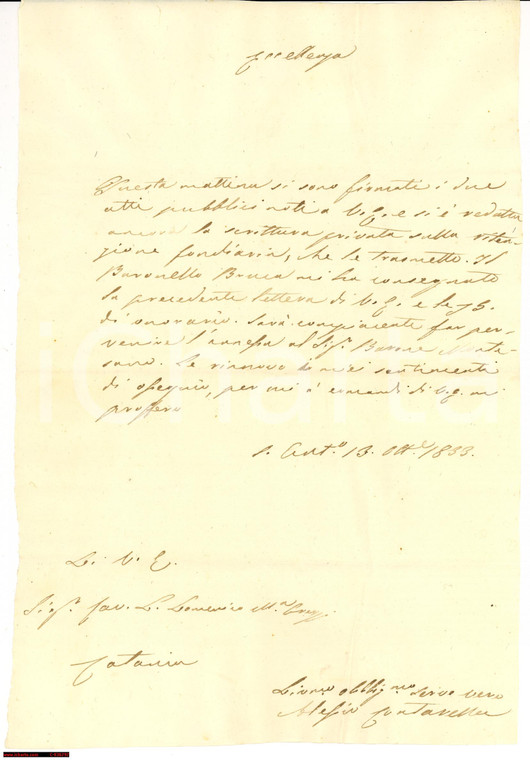 Eccellenza
Questa mattina si sono firmati i due
atti pubblici noti a V. E. e si è redatta
ancora la scrittura privata sulla riten-
zione fondiaria, che le trasmetto. Il
Baronello Bruca mi ha consegnato
la precedente lettera di V. E. e le
di onorario. Sarà compiacente far per-
venire l'annessa al Sig.r Barone
Le rinnovo i miei sentimenti
di ossequio, per cui a' comandi di V. E. mi
proffero
13. Ott.e 1833.
Di V. E.
Sig.r Cav. D. Domenico
Catania
Div.mo obblig.mo servo vero
Alessio